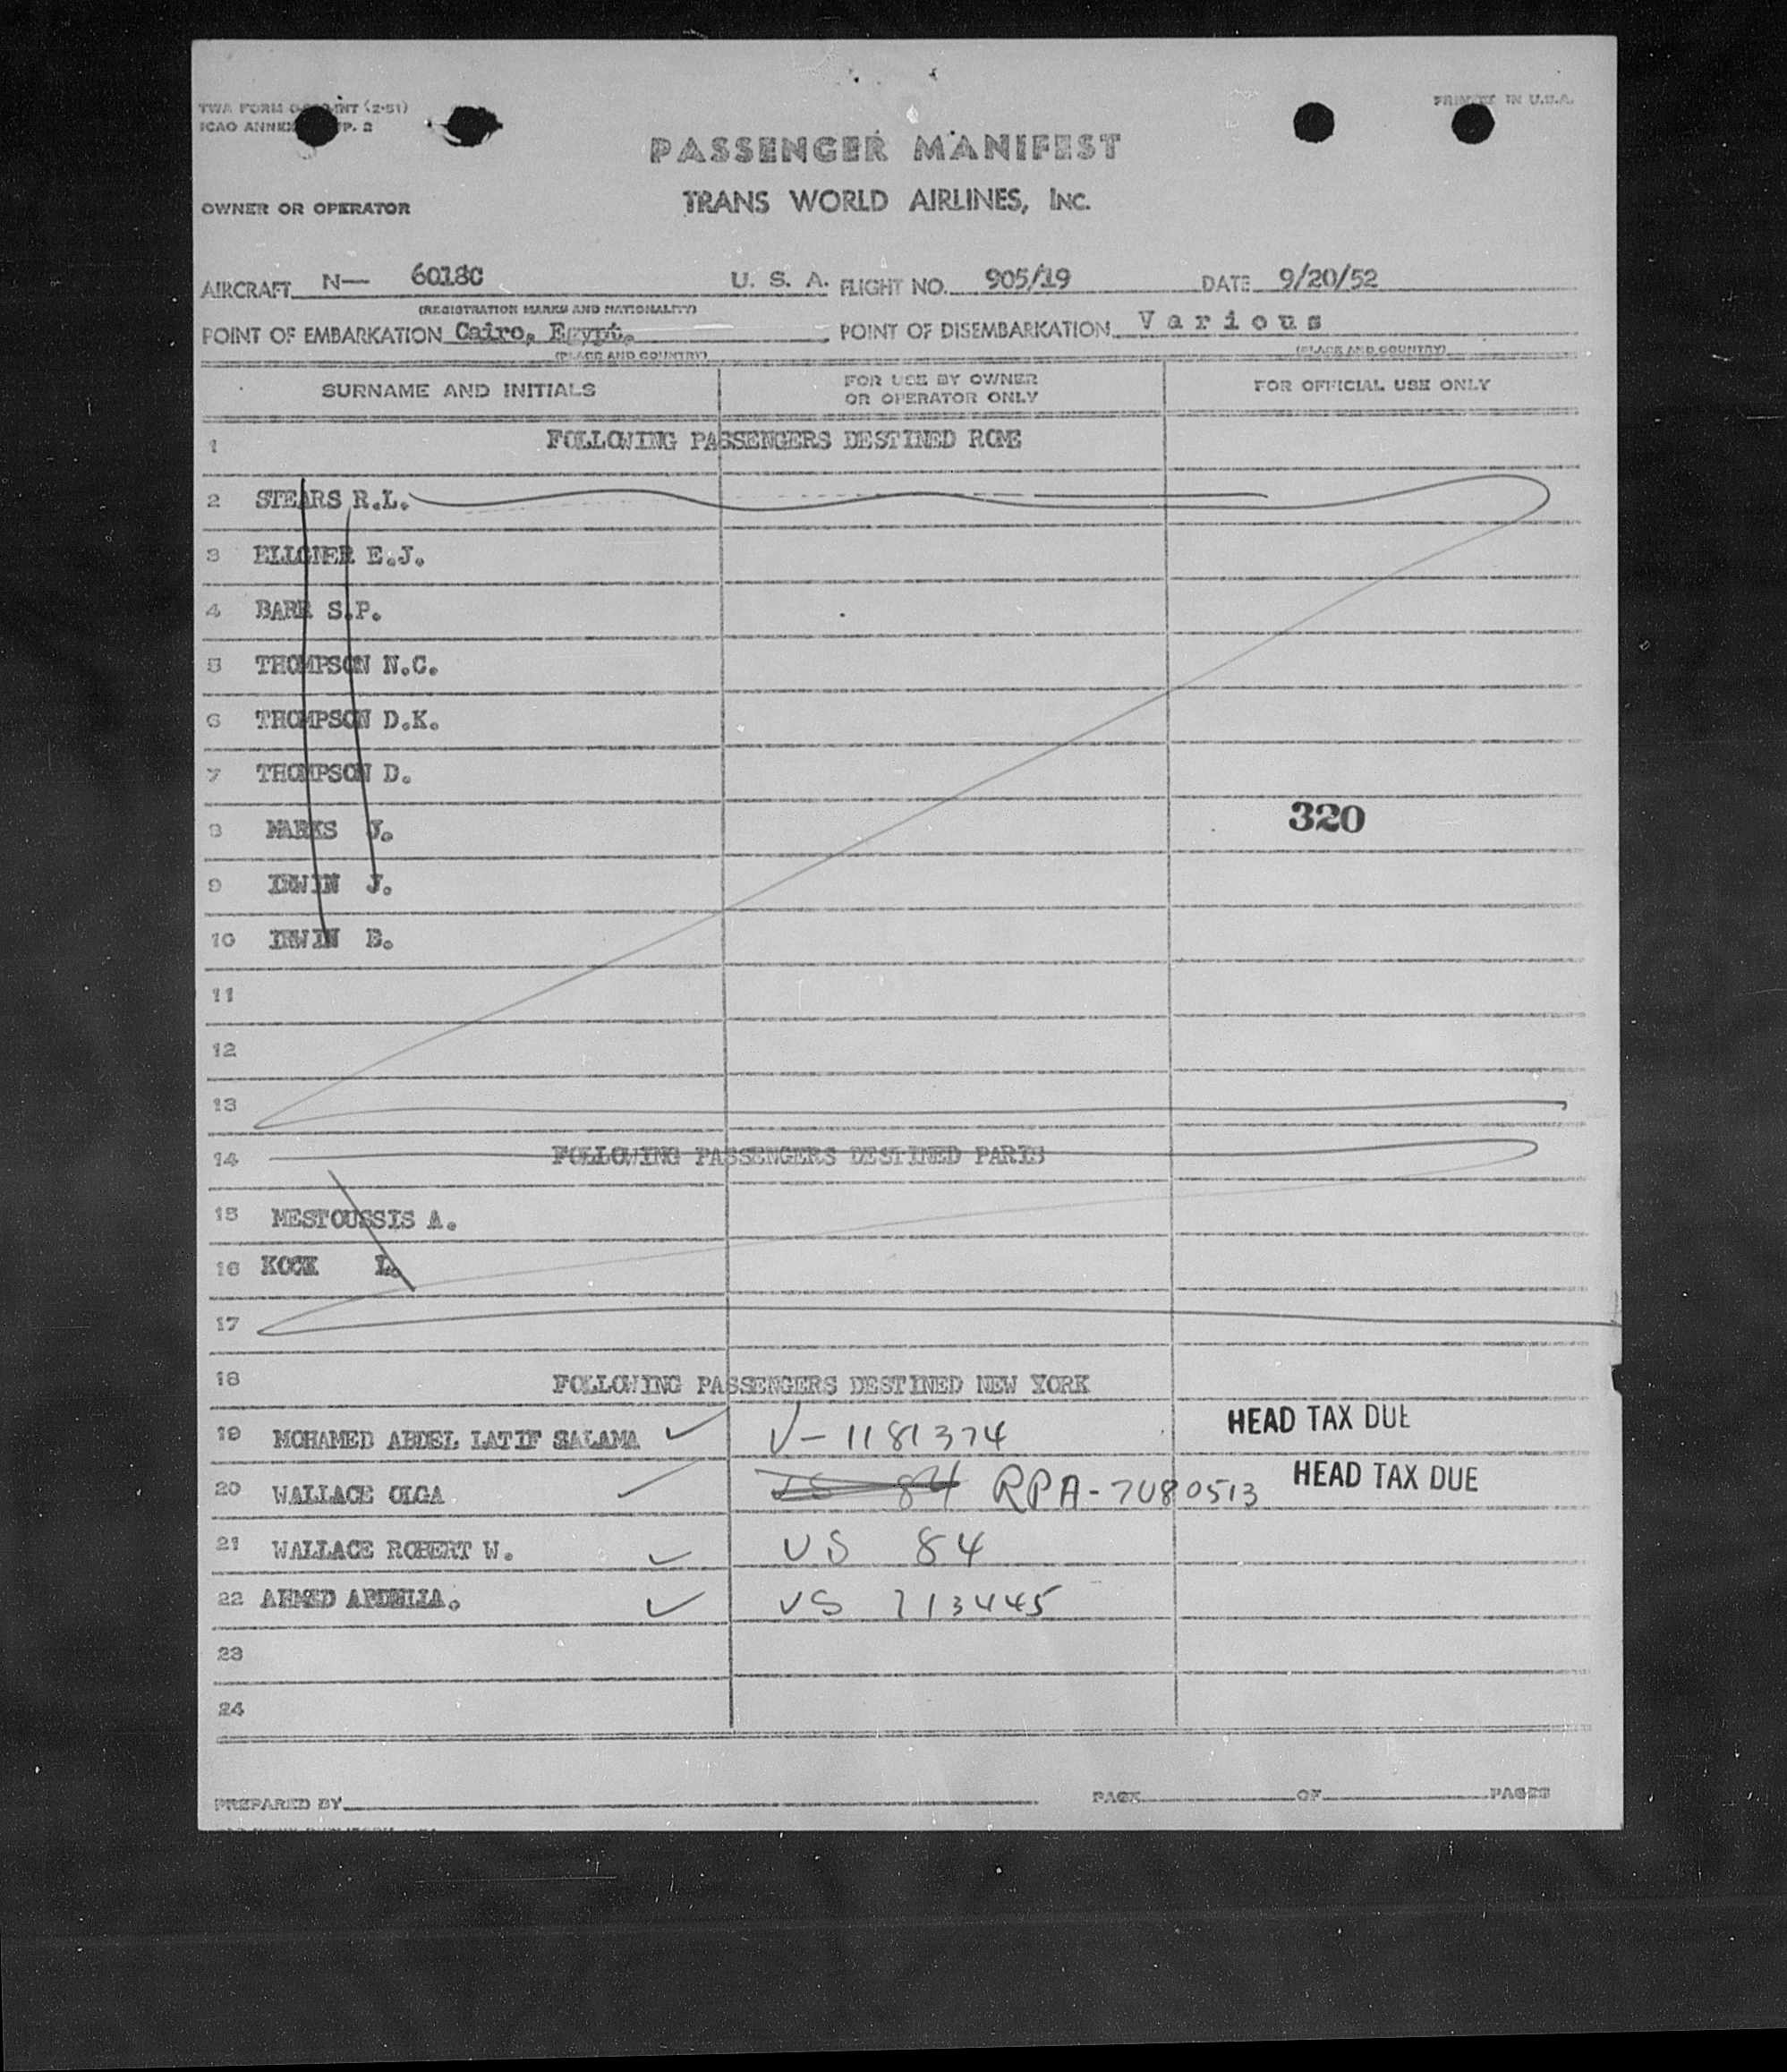 TWA FORM INT (2-51)
PRINTED IN U.S.A.
ICAO ANNEX P. 2
PASSENGER MANIFEST
OWNER OR OPERATOR TRANS WORLD AIRLINES, INC.
AIRCRAFT N— 6018C U. S. A. FLIGHT NO. 905/19 DATE 9/20/52
(REGISTRATION MARKS AND NATIONALITY)
POINT OF EMBARKATION Cairo, Egypt. POINT OF DISEMBARKATION Various
(PLACE AND COUNTRY) (PLACE AND COUNTRY)
SURNAME AND INITIALS FOR USE BY OWNER OR OPERATOR ONLY FOR OFFICIAL USE ONLY
1 FOLLOWING PASSENGERS DESTINED ROME
2 STEARS R.L.
3 E.J.
4 BARR S.P.
5 THOMPSON N.C.
6 THOMPSON D.K.
7 THOMPSON D.
8 MARKS J. 320
9 IRWIN J.
10 IRWIN B.
11
12
13
14 FOLLOWING PASSENGERS DESTINED PARIS
15 MESTOUSSIS A.
16 KOCK L.
17
18 FOLLOWING PASSENGERS DESTINED NEW YORK
19 MOHAMED ABDEL LATIF SALAMA V-1181374 HEAD TAX DUE
20 WALLACE OLGA US 84 RPA-7080513 HEAD TAX DUE
21 WALLACE ROBERT W. US 84
22 AHMED US 713445
23
24
PREPARED BY PAGE OF PAGES